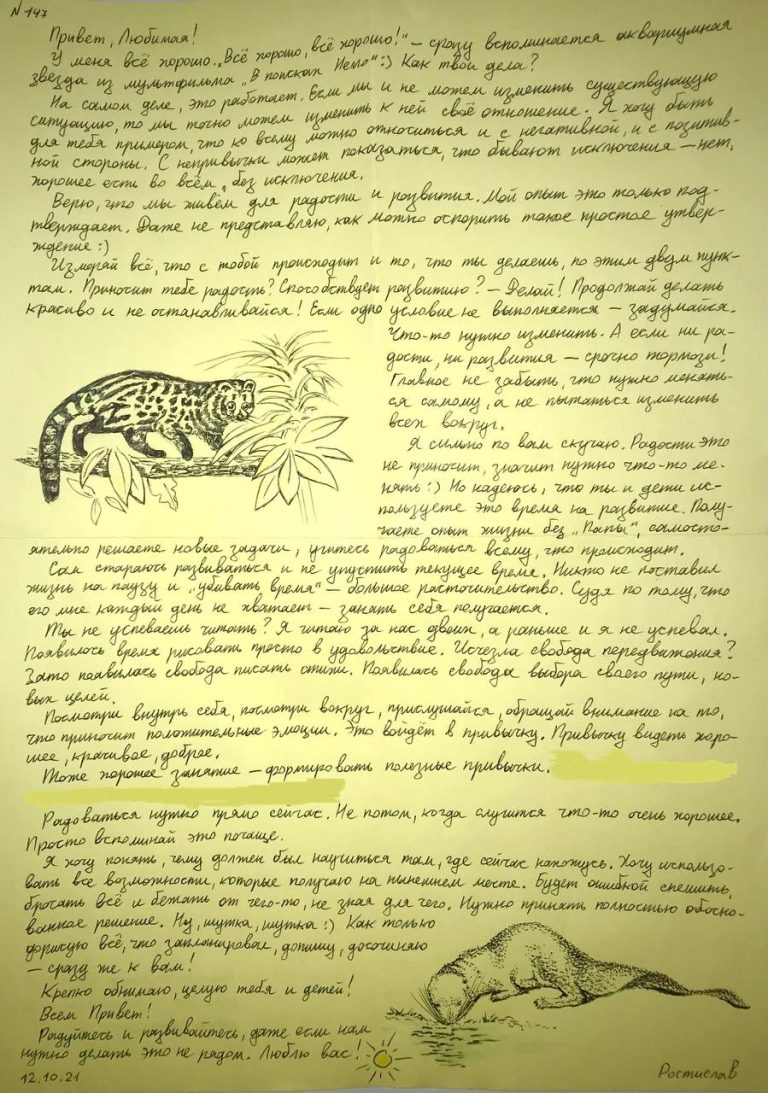 N 147
Привет, Любимая!
У меня всё хорошо. „Всё хорошо, всё хорошо!“ – сразу вспоминается аквариумная
звезда из мультфильма „В поисках Немо“:) Как твои дела?
На самом деле, это работает. Если мы и не можем изменить существующую
ситуацию, то мы точно можем изменить к ней своё отношение. Я хочу быть
для тебя примером, что ко всему можно относиться и с негативной, и с позитив-
ной стороны. С непривычки может показаться, что бывают исключения – нет,
хорошее есть во всём, без исключения.
Верю, что мы живём для радости и развития. Мой опыт это только под-
тверждает. Даже не представляю, как можно оспорить такое простое утвер-
ждение:)
Измеряй всё, что с тобой происходит и то, что ты делаешь, по этим двум пунк-
там. Приносит тебе радость? Способствует развитию? – Делай! Продолжай делать
красиво и не останавливайся! Если одно условие не выполняется – задумайся.
Что-то нужно изменить. А если ни ра-
дости, ни развития – срочно тормози!
Главное не забыть, что нужно менять-
ся самому, а не пытаться изменить
всех вокруг.
Я сильно по вам скучаю. Радости это
не приносит, значит нужно что-то ме-
нять:) Но надеюсь, что ты и дети ис-
пользуете это время на развитие. Полу-
чаете опыт жизни без „Папы“, самосто-
ятельно решаете новые задачи, учитесь радоваться всему, что происходит.
Сам стараюсь развиваться и не упустить текущее время. Никто не поставил
жизнь на паузу и „убивать время“ – большое расточительство. Судя по тому, что
его мне каждый день не хватает – занять себя получается.
Ты не успеваешь читать? Я читаю за нас двоих, а раньше и я не успевал.
Появилось время рисовать просто в удовольствие. Исчезла свобода передвижения?
Зато появилась свобода писать стихи. Появилась свобода выбора своего пути, но-
вых целей.
Посмотри внутрь себя, посмотри вокруг, прислушайся, обращай внимание на то,
что приносит положительные эмоции. Это войдёт в привычку. Привычку видеть хоро-
шее, красивое, доброе.
Тоже хорошее занятие – формировать полезные привычки.
Радоваться нужно прямо сейчас. Не потом, когда случится что-то очень хорошее.
Просто вспоминай это почаще.
Я хочу понять, чему должен был научиться там, где сейчас нахожусь. Хочу использо-
вать все возможности, которые получаю на нынешнем месте. Будет ошибкой спешить,
бросать всё и бежать от чего-то, не зная для чего. Нужно принять полностью обосно-
ванное решение. Ну, шутка, шутка:) Как только
дорисую всё, что запланировал, допишу, досочиняю
– сразу же к вам!
Крепко обнимаю, целую тебя и детей!
Всем Привет!
Радуйтесь и развивайтесь, даже если нам
нужно делать это не рядом. Люблю вас!
12.10.21
Ростислав